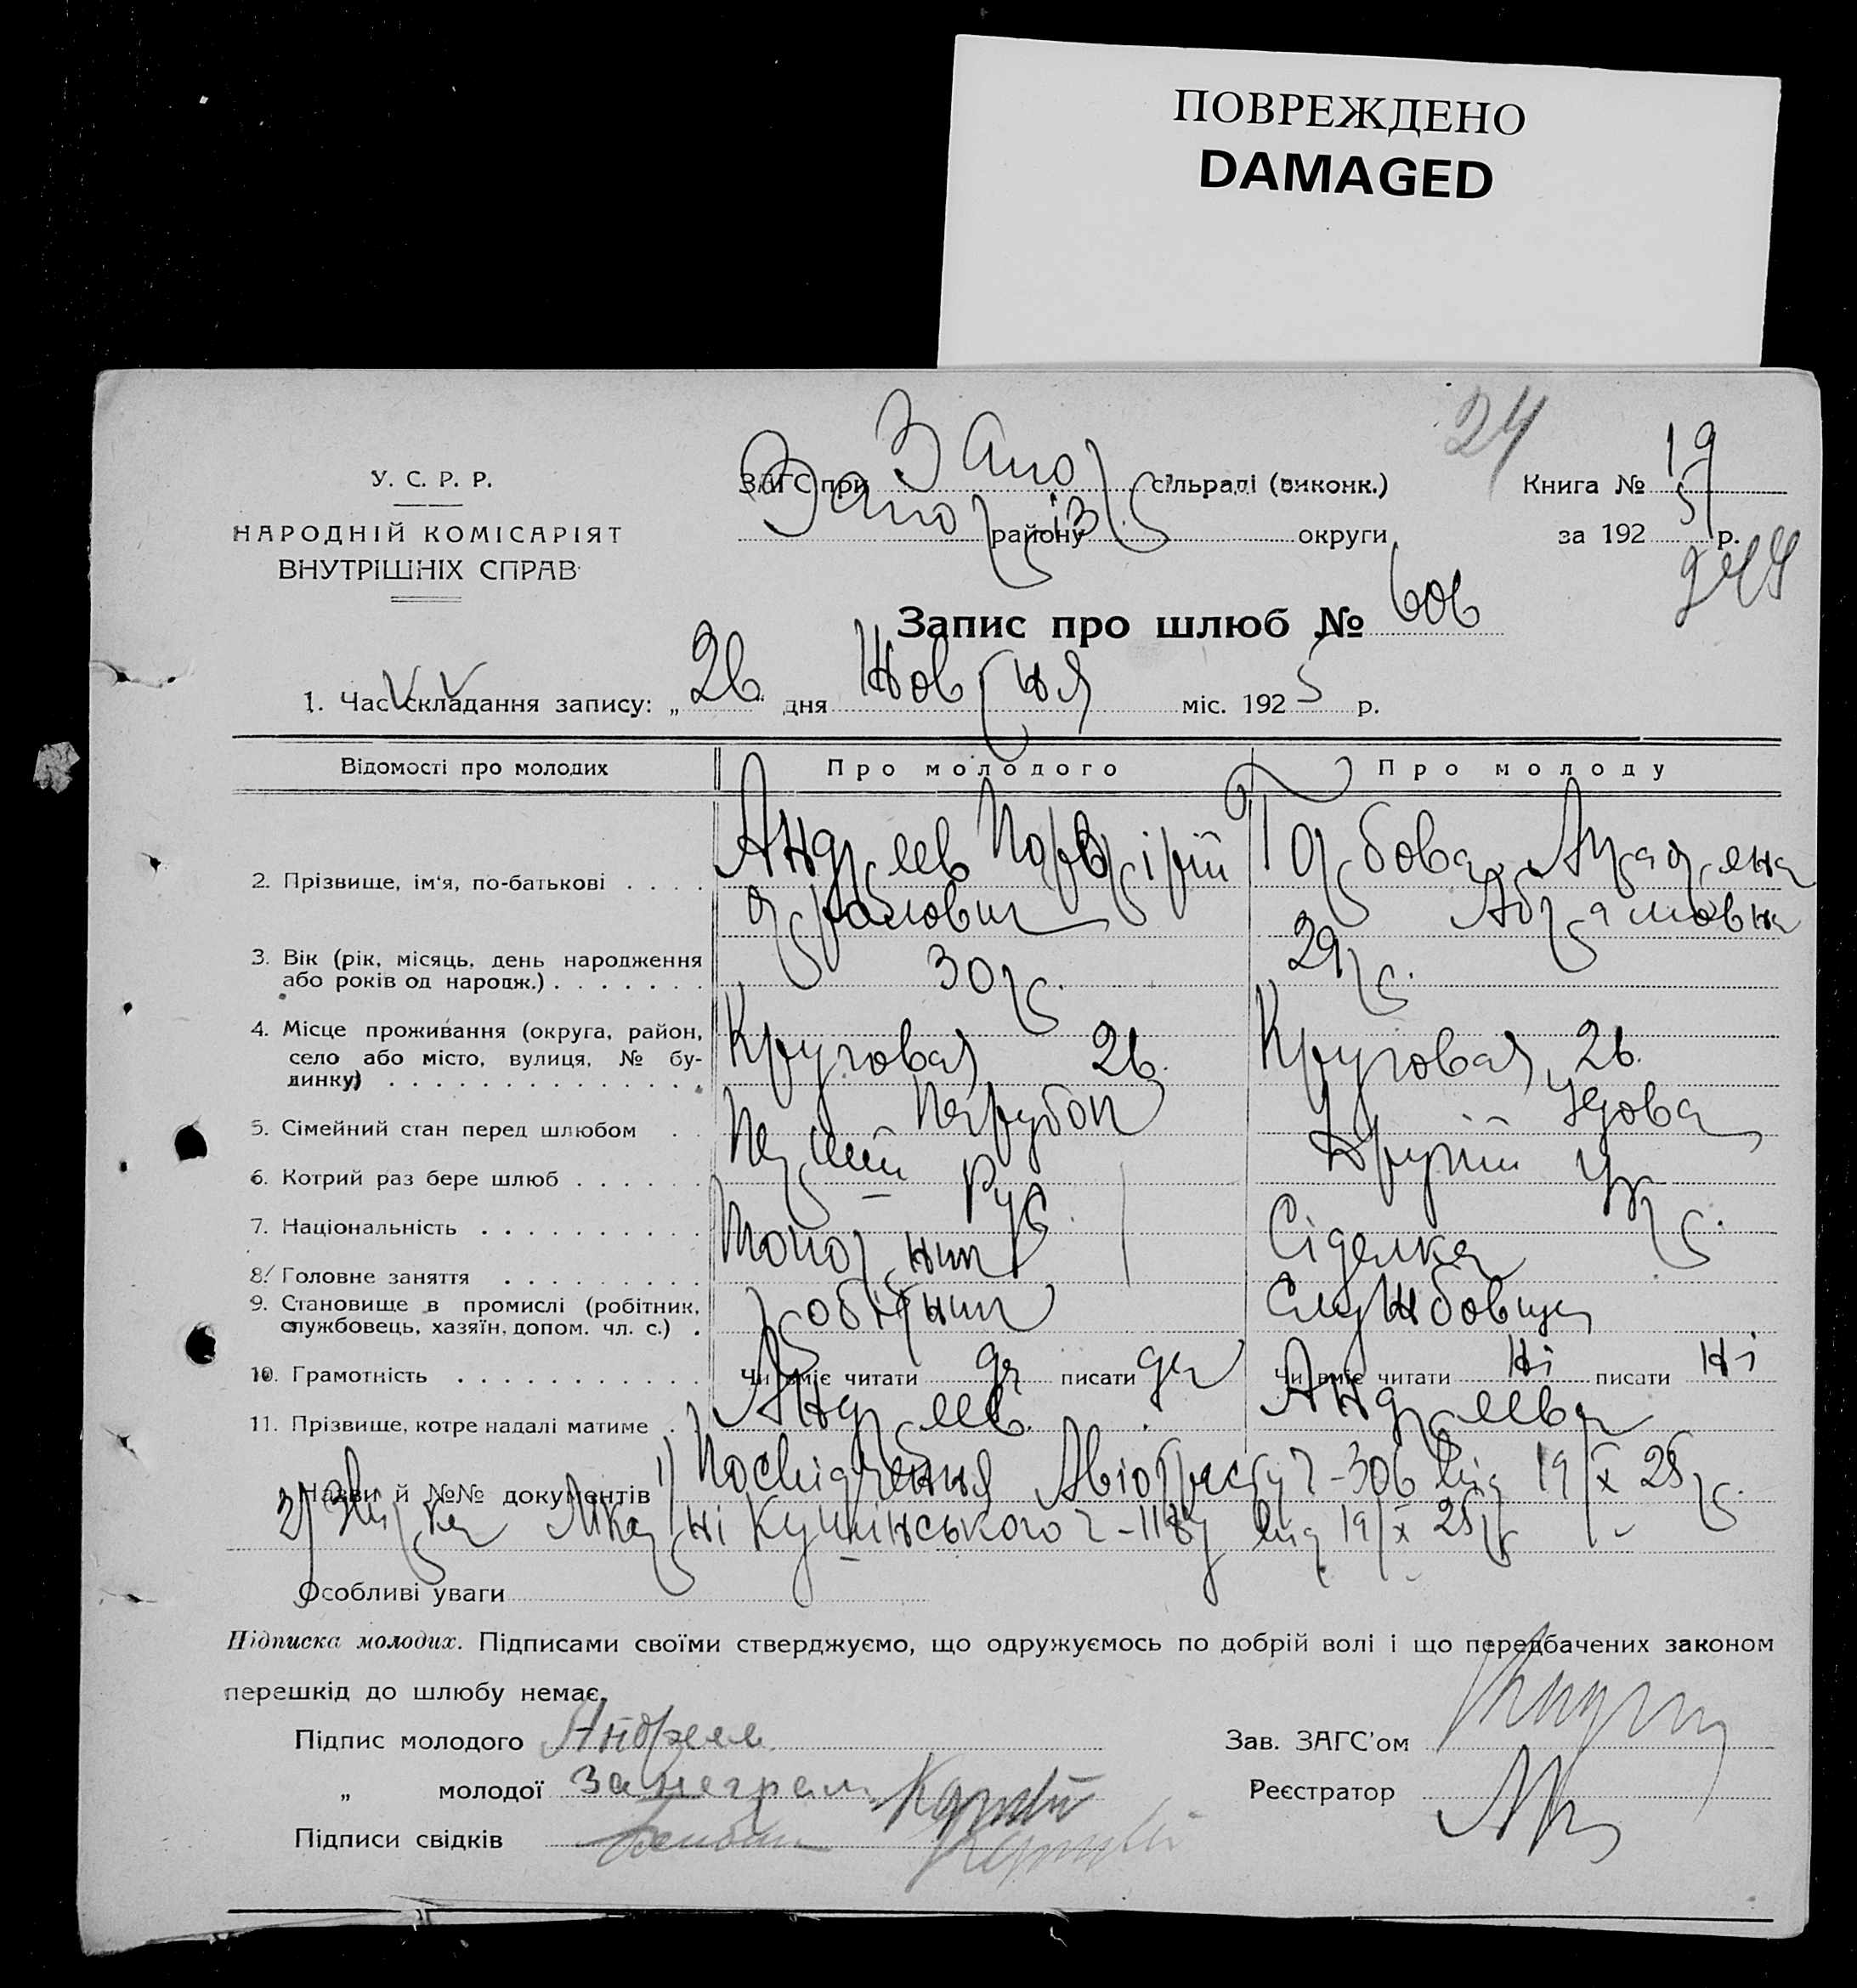 ПОВРЕЖДЕНО
DAMAGED
24
У. С. Р. Р.
НАРОДНІЙ КОМІСАРІЯТ
ВНУТРІШНІХ СПРАВ
ЗАГС при Запор сільраді (виконк.)
Запоріз району округи
Книга № 19
за 1925 р.
244
Запис про шлюб № 606
1. Час складання запису: „26" дня Жовтня міс. 1925 р.
Відомості про молодих Про молодого Про молоду
2. Прізвище, ім'я, по-батькові . . . . Андреев Горбова
Абрамовна
3. Вік (рік, місяць, день народження
або років од народж.) . . . . . . . 30 р. 29 р.
4. Місце проживання (округа, район,
село або місто, вулиця, № бу-
динку) . . . . . . . . . . . . . . Круговая 26. Круговая 26.
5. Сімейний стан перед шлюбом . . Парубок Удова
6. Котрий раз бере шлюб . . . . . . Перший Другий
7. Національність . . . . . . . . . . Рус. Укр.
8. Головне заняття . . . . . . . . . Сіделка
9. Становище в промислі (робітник,
службовець, хазяїн, допом. чл. с.) . робітник Службовиця
10. Грамотність . . . . . . . . . . . Чи вміє читати да писати да Чи вміє читати ні писати ні
11. Прізвище, котре надалі матиме . Андреев. Андреева
Назви й №№ документів 1) Посвідчення ч-306 від 19/X 25 р.
2) від 19/X 25 р.
Особливі уваги
Підписка молодих. Підписами своїми стверджуємо, що одружуємось по добрій волі і що передбачених законом
перешкід до шлюбу немає.
Підпис молодого Андреев
Зав. ЗАГС'ом
„ молодої За неграм.
Реєстратор
Підписи свідків